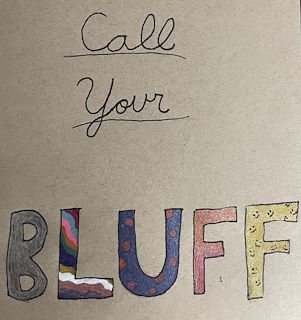 Call
Your
BLUFF